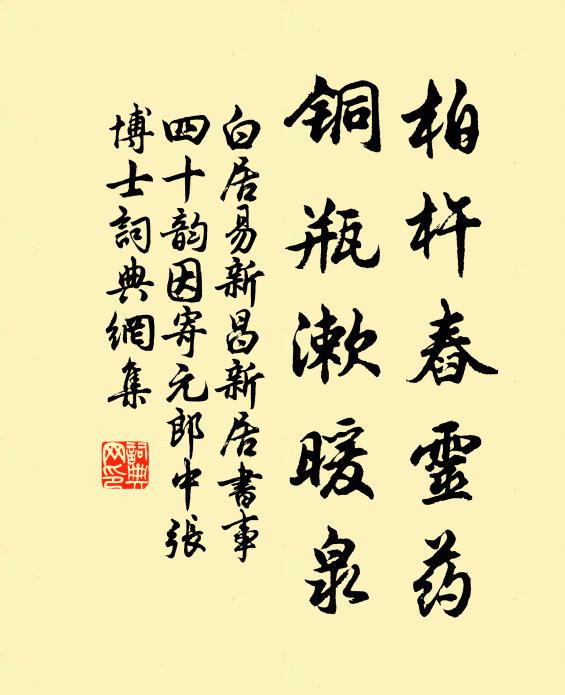 柏杵舂靈药
铜瓶漱暖泉
白居易新昌新居書事
四十韵因寄元郎中張
博士詞典網集
詞典网印